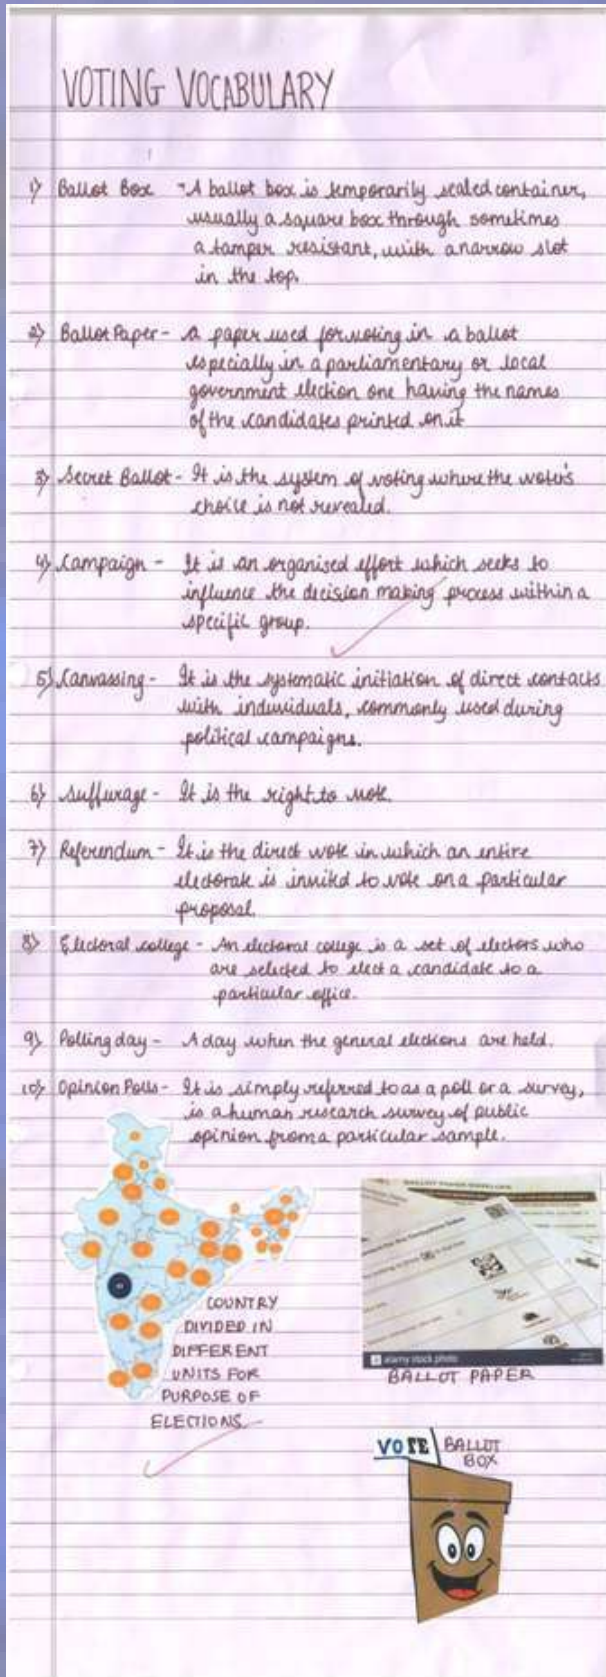 VOTING VOCABULARY
1) Ballot Box - A ballot box is temporarily sealed container,
usually a square box through sometimes
a tamper resistant, with a narrow slot
in the top.
2) Ballot Paper - A paper used for voting in a ballot
especially in a parliamentary or local
government election one having the names
of the candidates printed on it
3) Secret Ballot - It is the system of voting where the voter's
choice is not revealed.
4) Campaign - It is an organised effort which seeks to
influence the decision making process within a
specific group.
5) Canvassing - It is the systematic initiation of direct contacts
with individuals, commonly used during
political campaigns.
6) Suffurage - It is the right to vote.
7) Referendum - It is the direct vote in which an entire
electorate is invited to vote on a particular
proposal.
8) Electoral college - An electoral college is a set of electors who
are selected to elect a candidate to a
particular office.
9) Polling day - A day when the general elections are held.
10) Opinion Polls - It is simply referred to as a poll or a survey,
is a human research survey of public
opinion from a particular sample.
COUNTRY
DIVIDED IN
DIFFERENT
UNITS FOR
PURPOSE OF
ELECTIONS
BALLOT PAPER ENVELOPE
alamy stock photo
BALLOT PAPER
VOTE
BALLOT
BOX